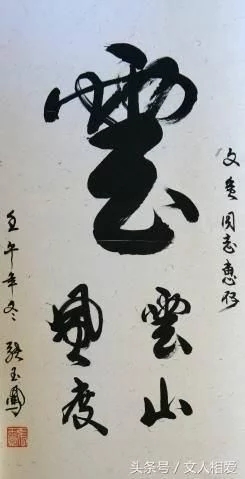 雲
文同志惠存
雲山
風度
壬午年冬 張玉鳳
头条号／文人相爱